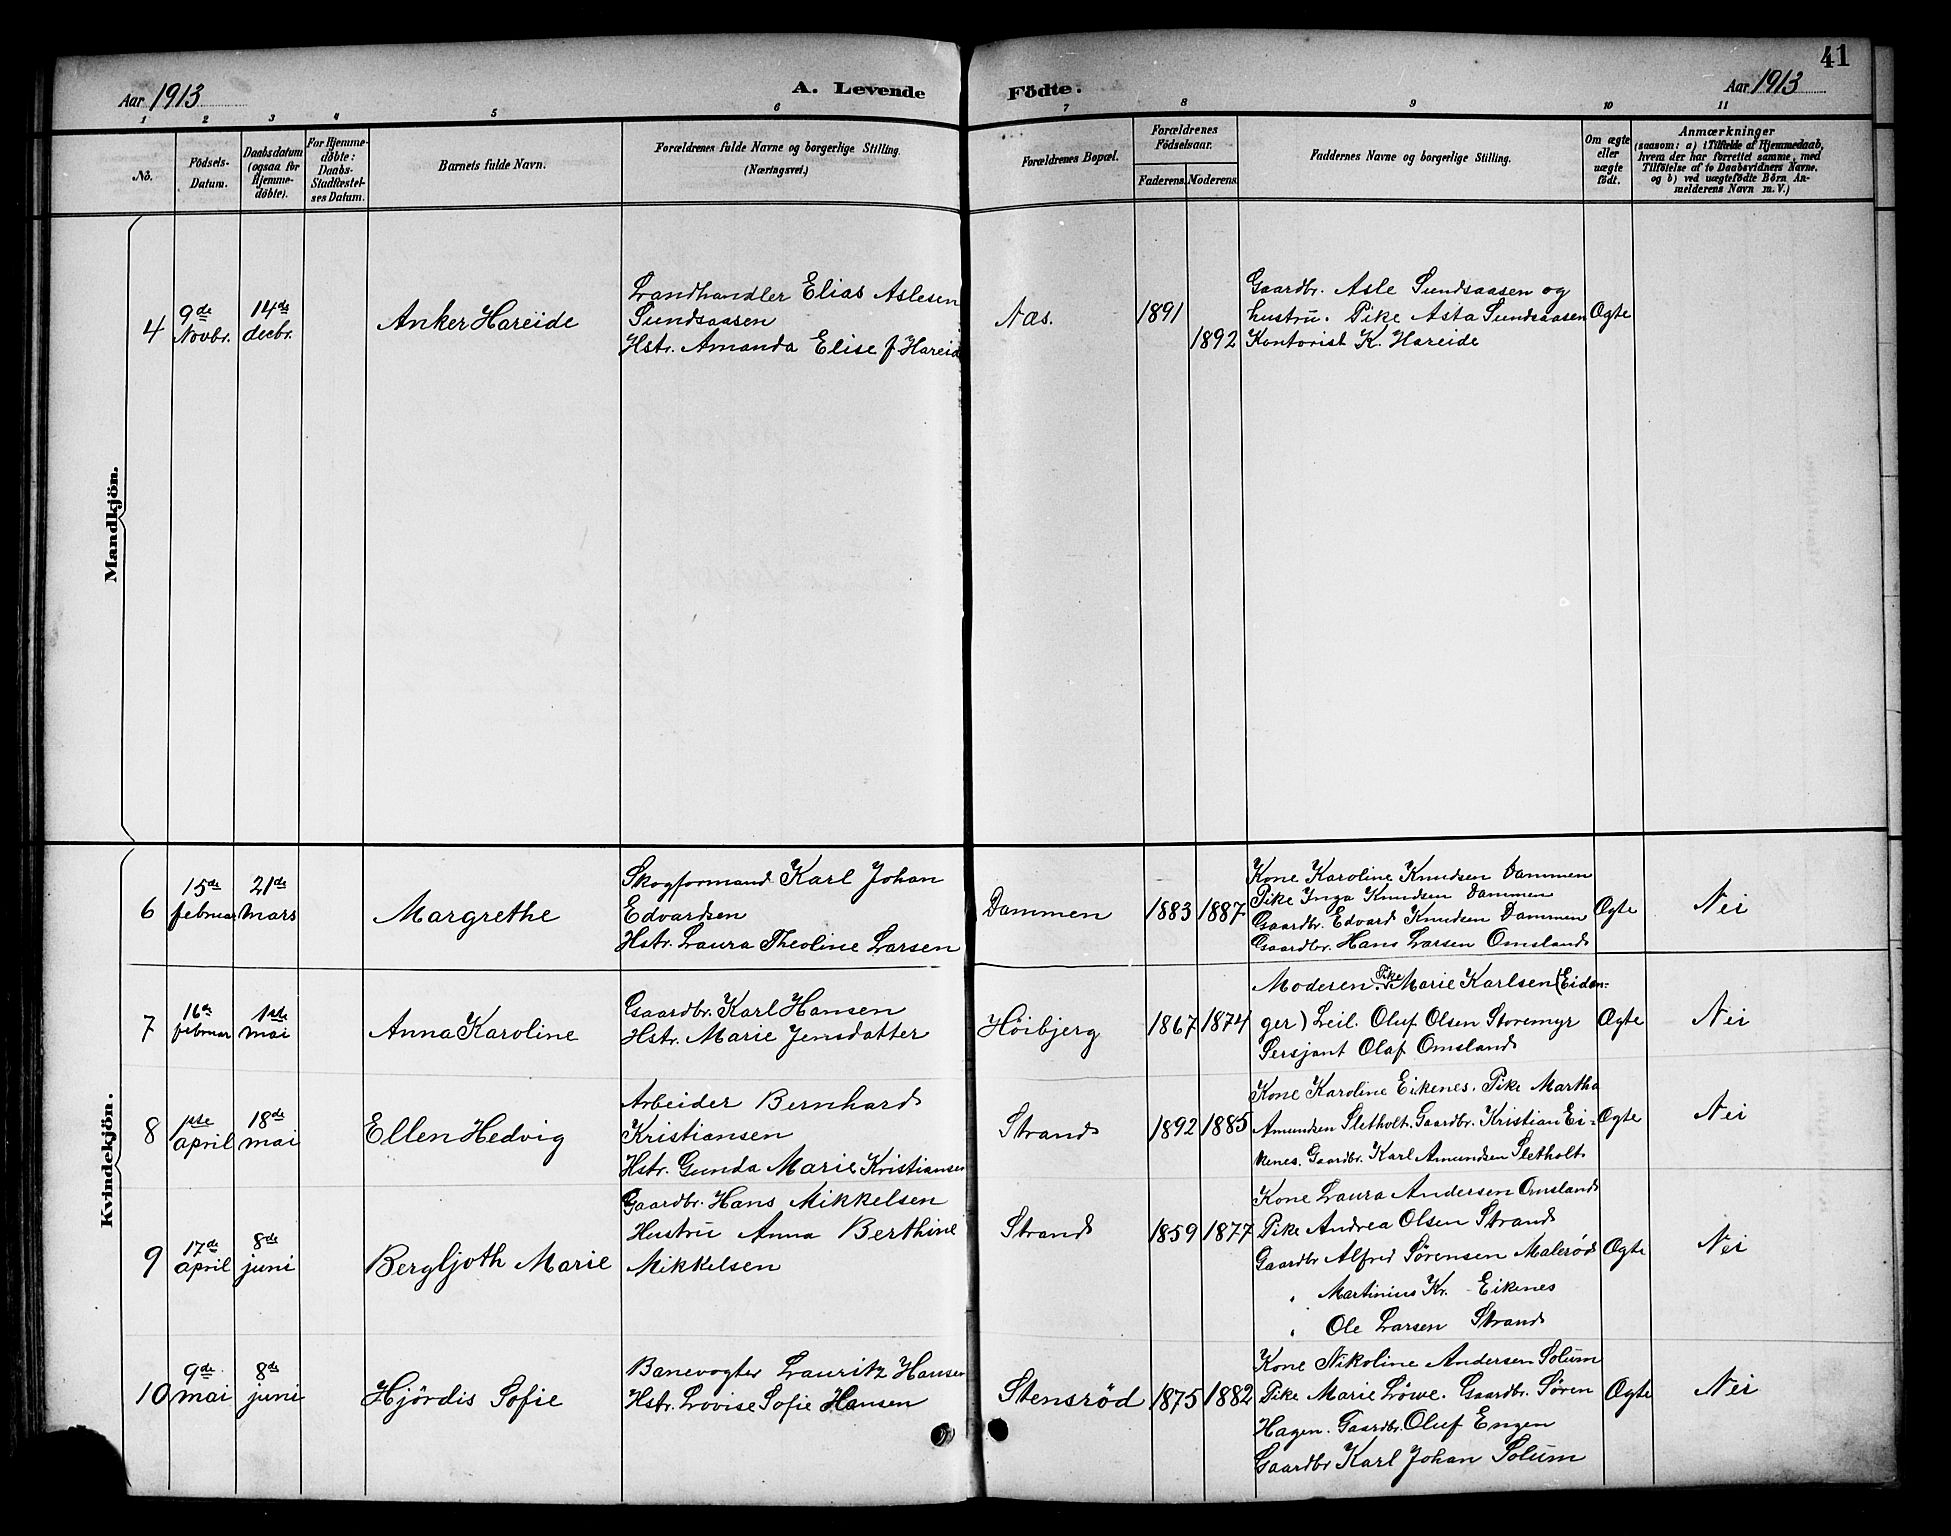 41
Aar 1913
A. Levende Födte.
Aar 1913
1 2 3 4 5 6 7 8 9 10 11
No.
Födsels-
Datum.
Daabsdatum
(ogsaa for
Hjemme-
döbte).
For Hjemme-
döbte:
Daabs-
Stadfæstel-
ses Datum.
Barnets fulde Navn.
Forældrenes fulde Navne og borgerlige Stilling.
(Næringsvei.)
Forældrenes Bopæl.
Forældrenes
Födselsaar.
Faderens. Moderens.
Faddernes Navne og borgerlige Stilling.
Om ægte
eller
uægte
födt.
Anmærkninger
(saasom: a) i Tilfælde af Hjemmedaab,
hvem der har forrettet samme, med
Tilföielse af to Daabsvidners Navne.
og b) ved uægtefödte Börn An-
melderens Navn m. V.)
Mandkjön.
4
9de
Novbr.
14de
decbr.
Anker Hareide
Landhandler Elias Aslesen
Sundsaasen
Hstr. Amanda Elise f Hareide
Næs.
1891
1892
Gaardbr. Asle Sundsaasen og
hustru. Pike Asta Sundsaasen
Kontorist K. Hareide
Ægte
Kvindekjön.
6
15de
februar
21de
mars
Margrethe
Skogformand Karl Johan
Edvardsen
Hstr. Laura Theoline Larsen
Dammen
1883 1887
Kone Karoline Knudsen Dammen
Pike Inga Knudsen Dammen
Gaardbr. Edvard Knudsen Dammen
Gaardbr. Hans Larsen Omsland
Ægte
Nei
7
16de
februar
1ste
mai
Anna Karoline
Gaardbr. Karl Hansen
Hstr. Marie Jensdatter
Höibjerg
1867 1874
Moderen. Pike Marie Karlsen (Eidan-
ger) Leil. Oluf Olsen Storemyr
Sersjant Olaf Omsland
Ægte
Nei
8
1ste
april
18de
mai
Ellen Hedvig
Arbeider Bernhard
Kristiansen
Hstr. Gunda Marie Kristiansen
Strand
1892 1885
Kone Karoline Eikenes. Pike Martha
Amundsen Sletholt. Gaardbr. Kristian Ei-
kenes. Gaardbr. Karl Amundsen Sletholt
Ægte
Nei
9
17de
april
8de
juni
Bergljoth Marie
Gaardbr. Hans Mikkelsen
Hustru Anna Berthine
Mikkelsen
Strand
1859 1877
Kone Laura Andersen Omsland
Pike Andrea Olsen Strand
Gaardbr Alfred Sörensen Malerød
" Martinius Kr. Eikenes
" Ole Larsen Strand
Ægte
Nei
10
9de
mai
8de
juni
Hjördis Sofie
Banevogter Lauritz Hansen
Hstr. Lovise Sofie Hansen
Stensröd
1875 1882
Kone Nikoline Andersen Solum
Pike Marie Löwe. Gaardbr. Sören
Hagen. Gaardbr. Oluf Engen
Gaardbr Karl Johan Solum
Ægte
Nei